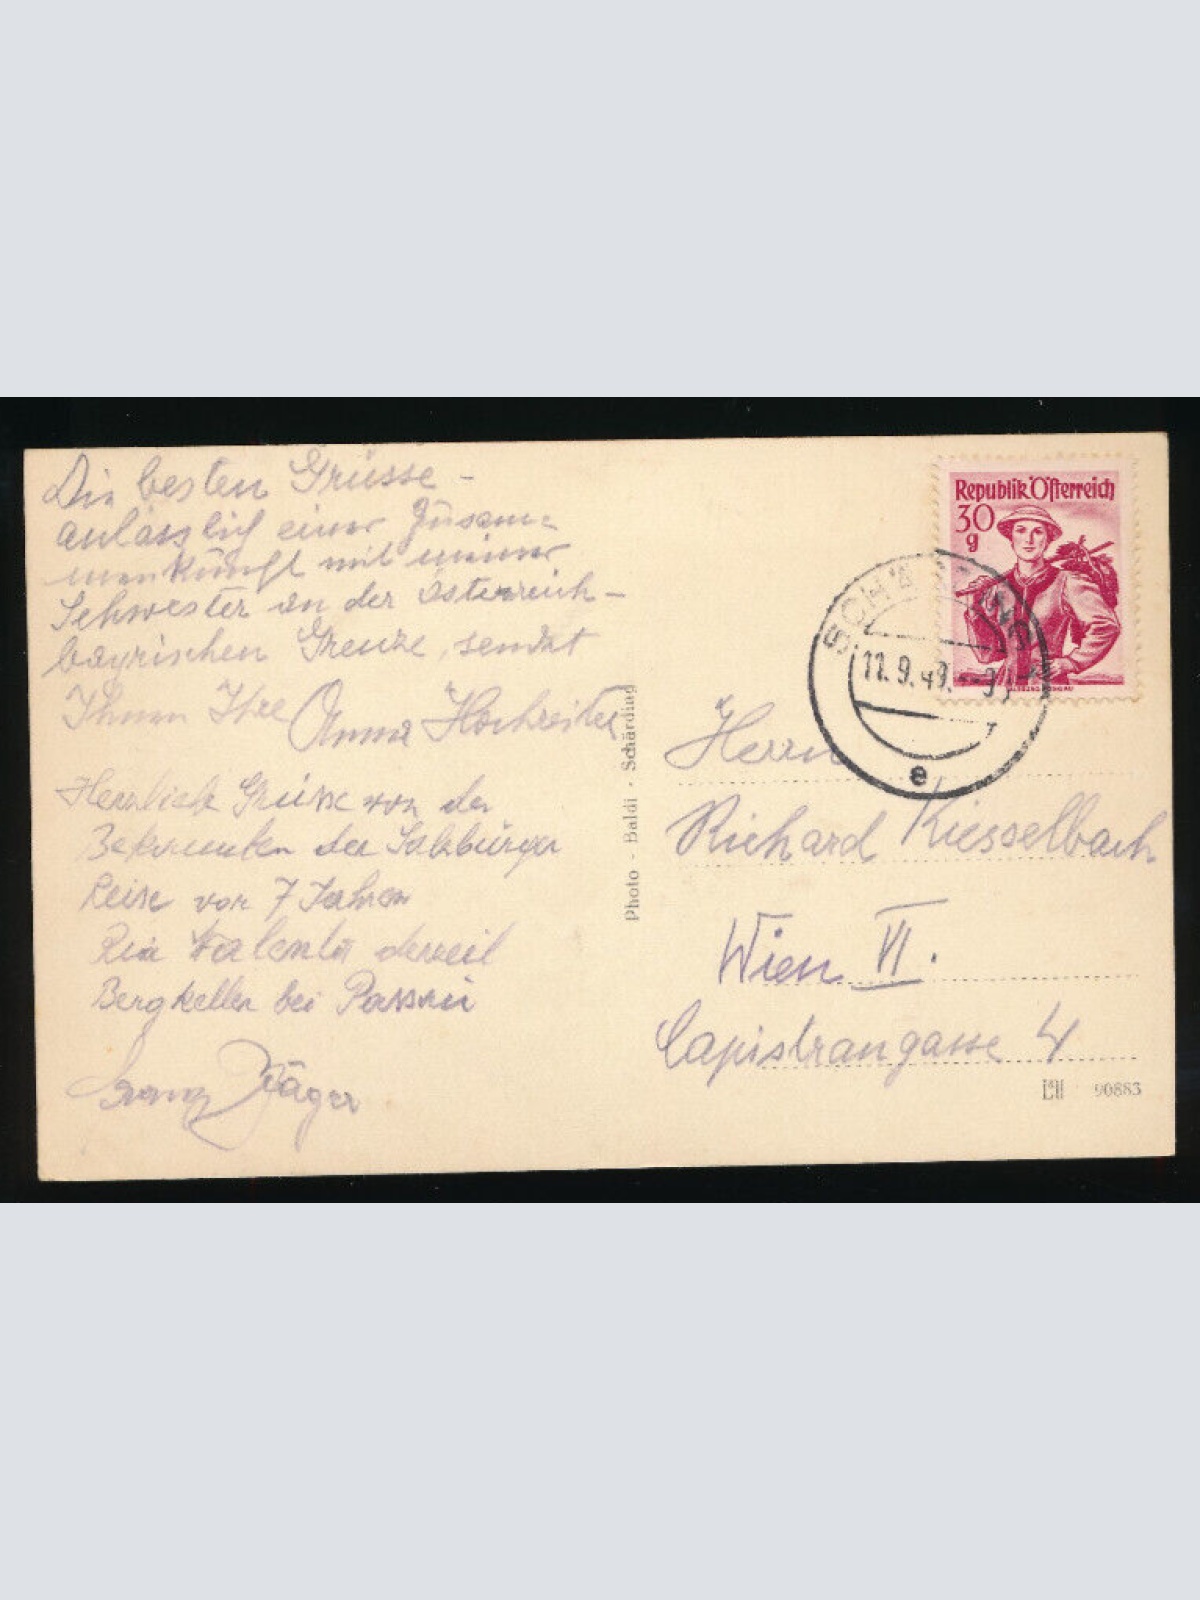 Die besten Grüsse -
anlässlich einer Zusam=
menkunft mit meiner
Schwester an der österreich-
bayrischen Grenze, sendet
Ihnen Ihre Anna Hochreiter
Herzliche Grüsse von der
Bekannten der Salzburger
Reise vor 7 Jahren
Ria derweil
Bergkeller bei Passau
Franz Jäger
Photo - Baldi · Schärding
Republik Österreich
30
g
SCHÄRDING
11.9.49.
e
Herrn
Richard Kiesselbach
Wien VI.
Capistrangasse 4
90883